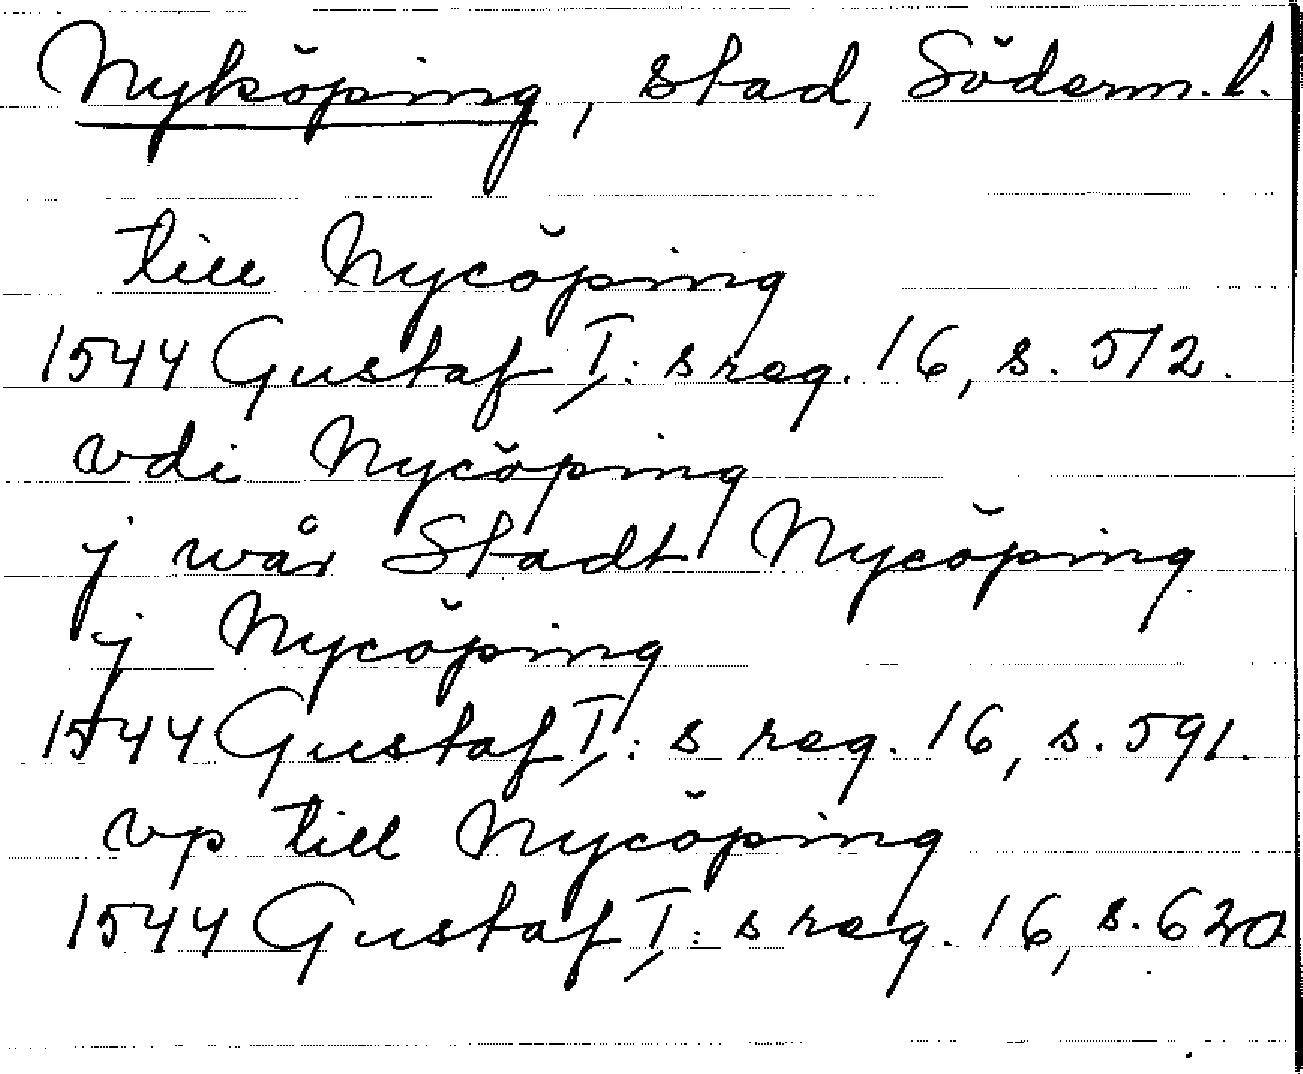 Nyköping, stad, Söderm. l.
till Nycöping
1544 Gustaf I: s reg. 16, s. 572.
vdi Nycöping
j wår Stadt Nycöping
j Nycöping
1544 Gustaf I: s reg. 16, s. 591.
vp till Nycöping
1544 Gustaf I: s reg. 16, s. 620